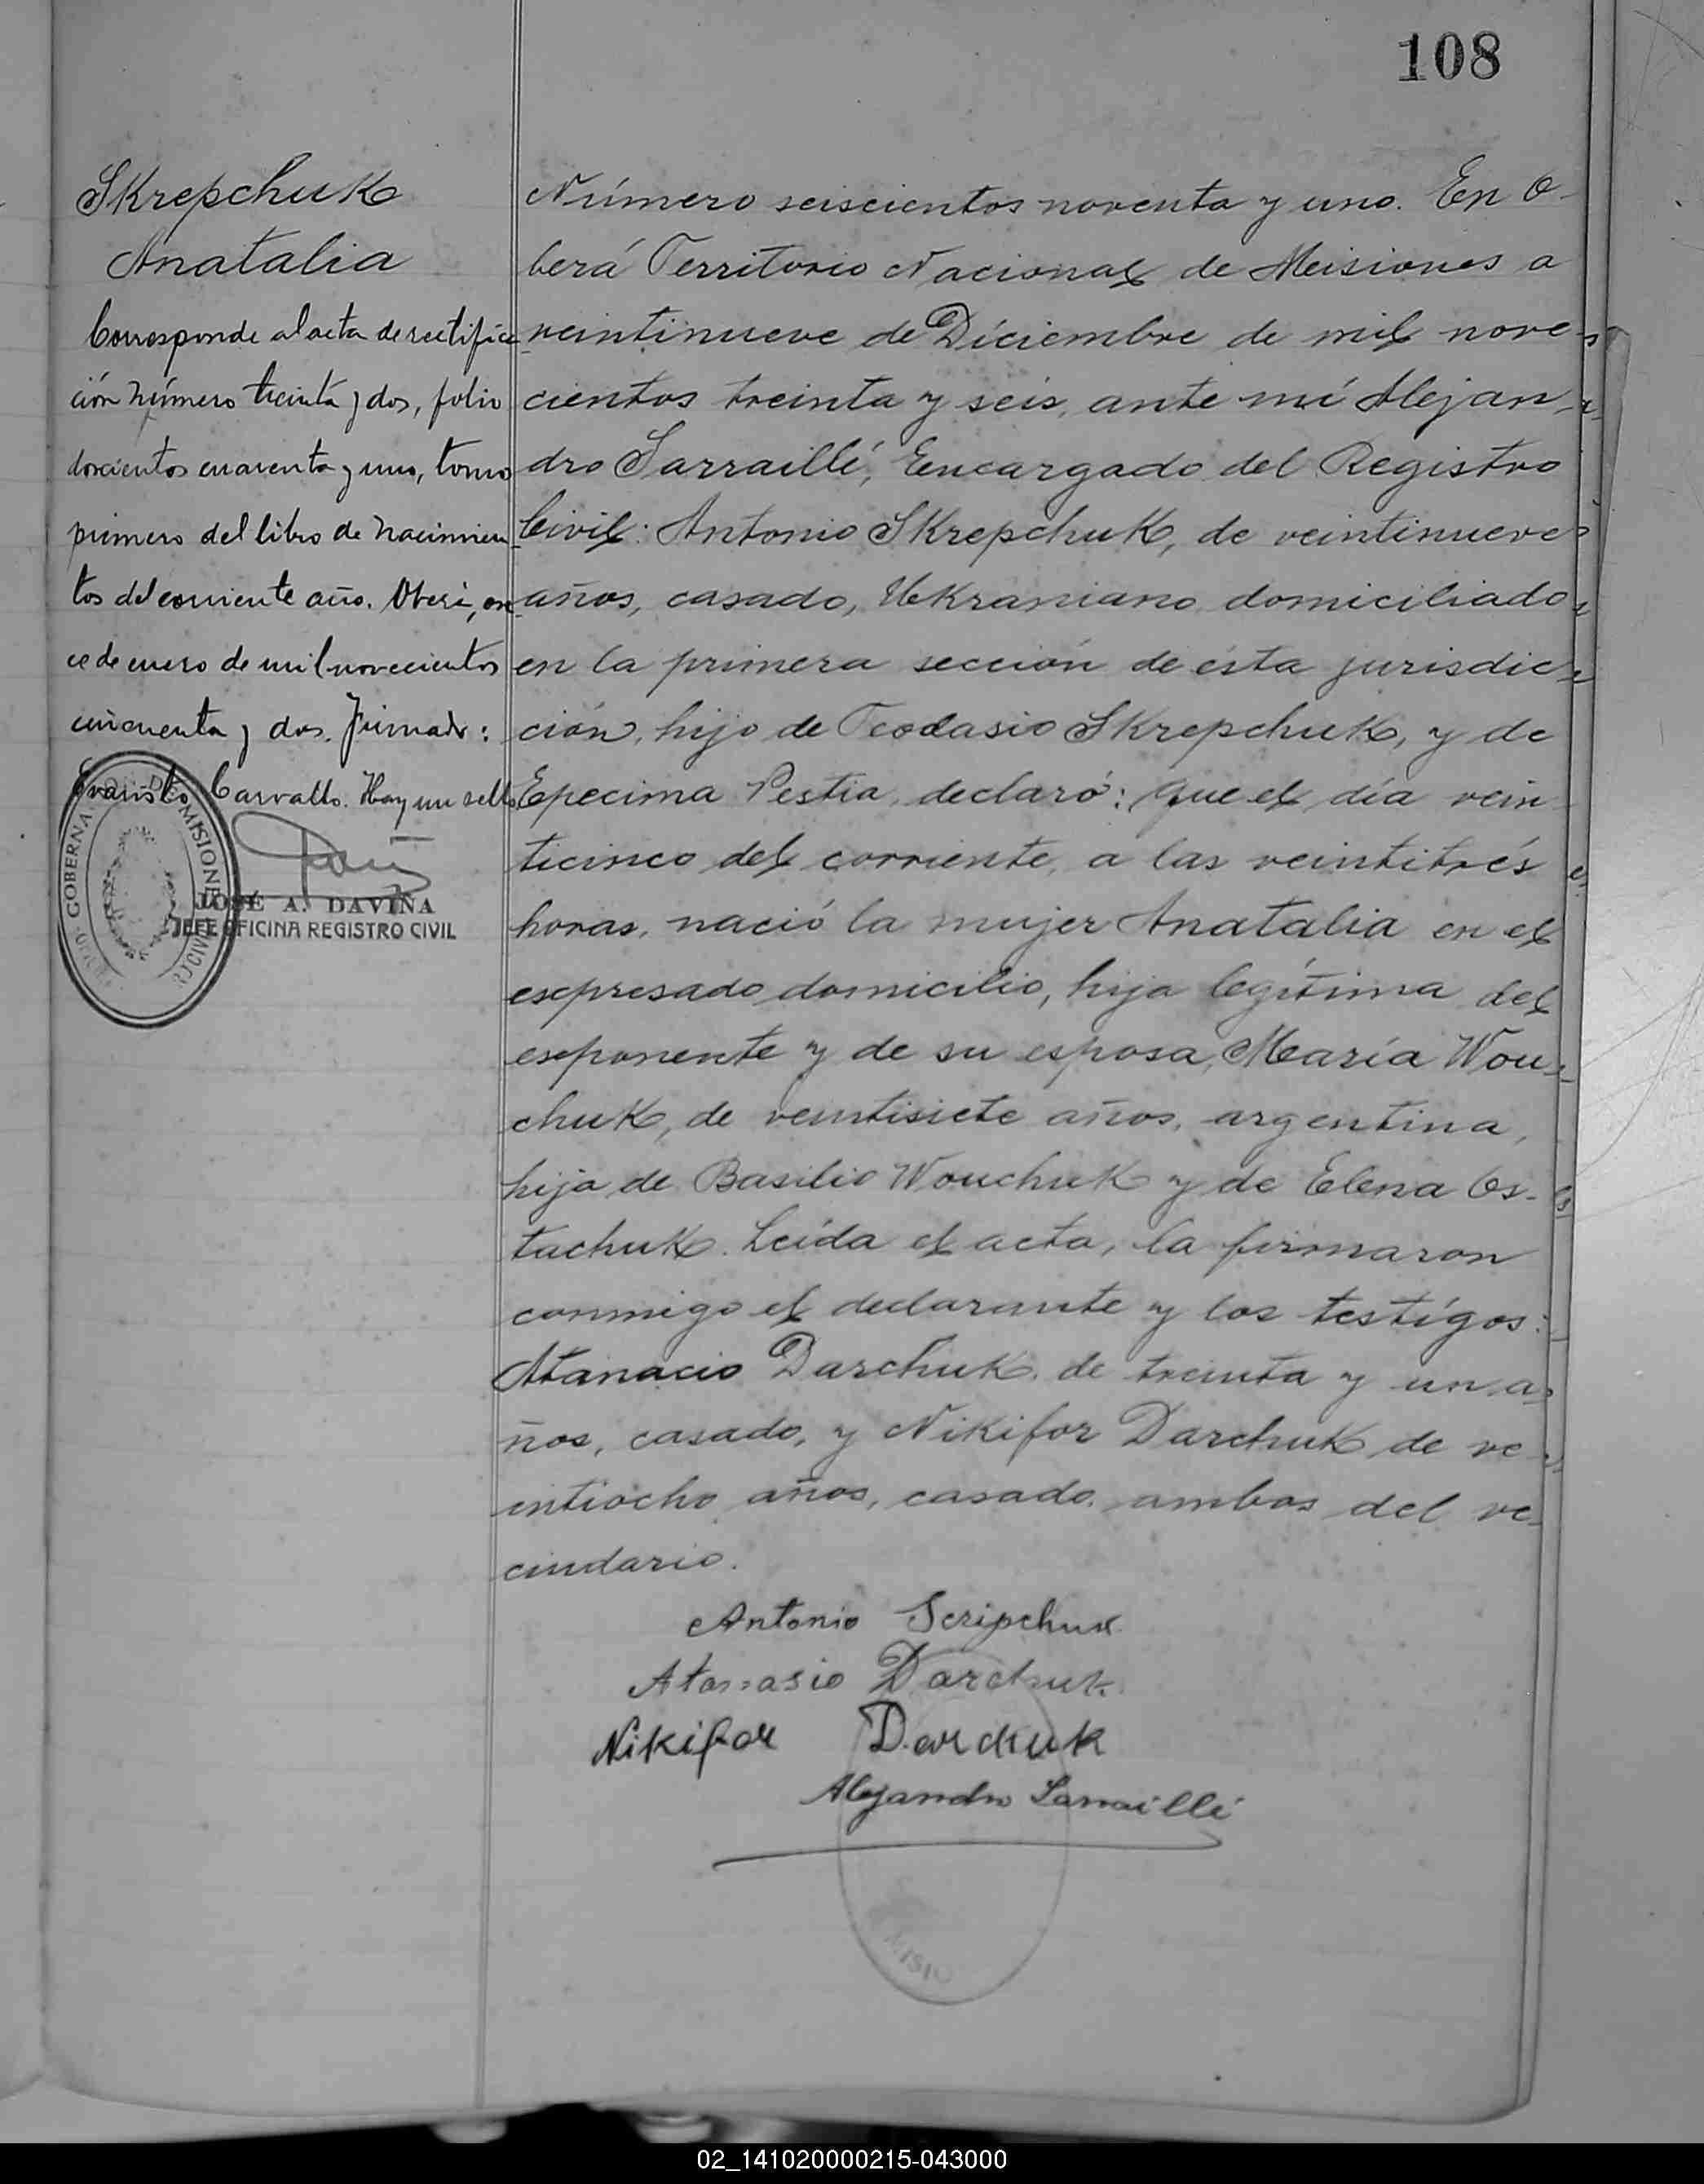 108
Skrepchuk
Anatalia
Corresponde al acta de rectifica
ción número treinta y dos, folio
doscientos cuarenta y uno, tomo
primero del libro de nacimien
tos del corriente año. Oberá, on
ce de enero de mil novecientos
cincuenta y dos. Firmado:
Evaristo Carvallo. Hay un sello
GOBERNA MISIONES
JOSÉ A. DAVIÑA
JEFE OFICINA REGISTRO CIVIL
Número seiscientos noventa y uno. En O-
berá Territorio Nacional de Misiones a
veintinueve de Diciembre de mil nove-
cientos treinta y seis, ante mí Alejan-
dro Sarraillé, Encargado del Registro
Civil: Antonio Skrepchuk, de veintinueve
años, casado, Ukraniano domiciliado
en la primera sección de ésta jurisdic-
ción, hijo de Teodasio Skrepchuk, y de
Epecima Pestia, declaró: Que el día vein
ticinco del corriente, a las veintitrés
horas, nació la mujer Anatalia en el
expresado domicilio, hija legítima del
exponente y de su esposa, María Wou-
chuk, de veintisiete años, argentina,
hija de Basilio Wouchuk y de Elena Os-
tachuk. Leída el acta, la firmaron
conmigo el declarante y los testígos:
Atanacio Darchuk, de treinta y un a-
ños, casado, y Nikifor Darchuk de ve
intiocho años, casado, ambos del ve-
cindario.
Antonio Scripchuk
Atanasio Darchuk
Nikifor Darchuk
Alejandro Sarraillé
MISIO
02_141020000215-043000